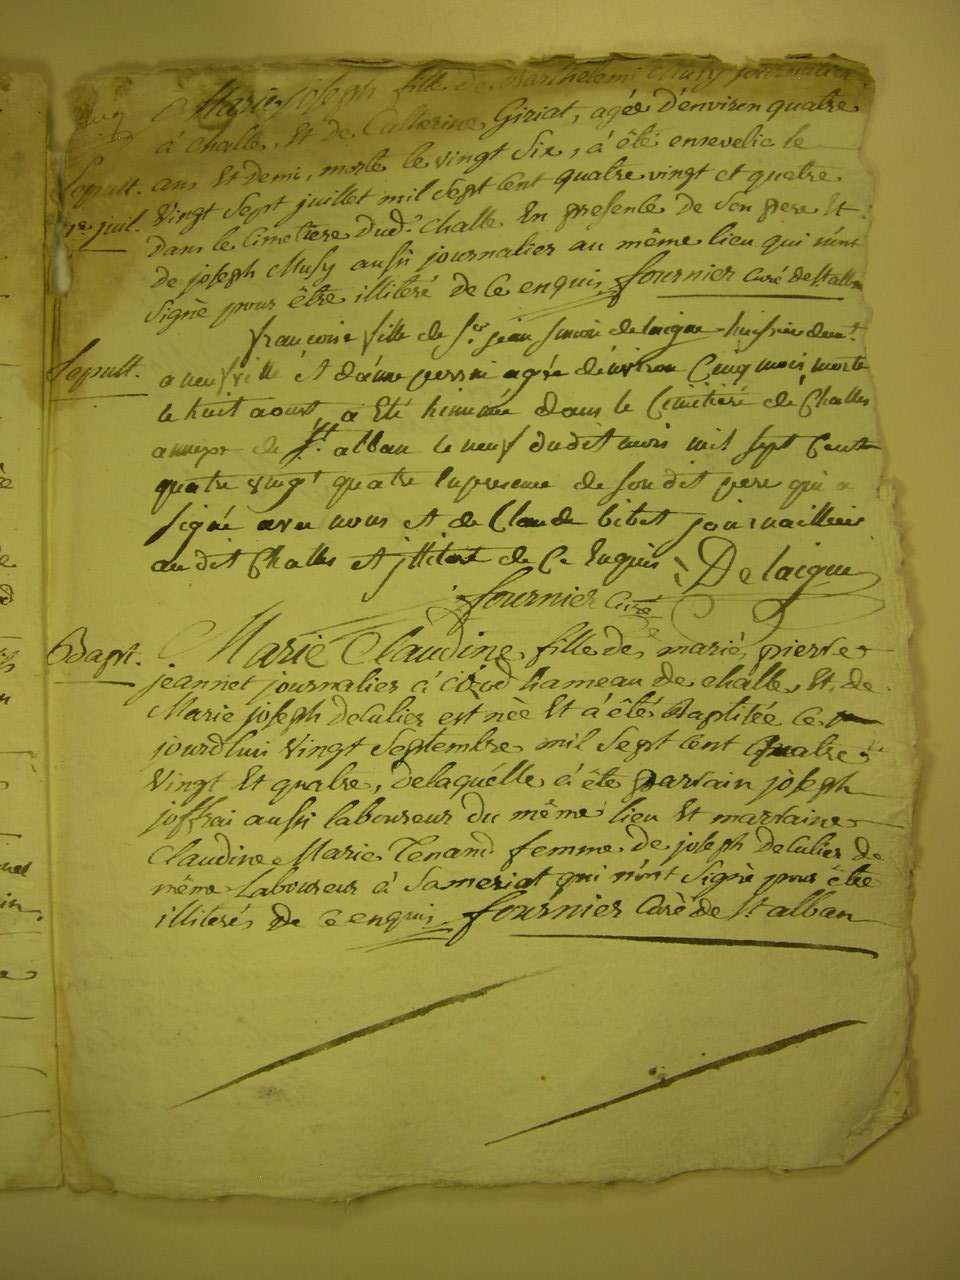 Marie joseph fille de Barthelemi Musy journalier
à challe, Et de Catterine Giriat, agée d'environ quatre
Sepult. ans Et demi, morte le vingt Six, à êté ensevelie le
juil. Vingt Sept juillet mil Sept Cent quatre vingt et quatre
dans le Cimetiere dud.t challe En presence de Son pere Et
de joseph Musy aussi journalier au même lieu qui n'ont
Signè pour être illiteré de ce enquis fournier Curé de St alban
francoise fille de Sr jean simon delaigue huissier demt
Sepult. a neufville Et dame agée denviron Cinq mois morte
le huit aoust a Eté hinumée dans le Cimitiére de Challes
annexe de St alban le neuf dudit mois mil sept Cent
quatre vingt quatre En presence de son dit pere qui a
signé avec nous et de Claude bibet journaillier
audit Challes et illiteré de Ce Enquis Delaigue
fournier Curé
Bapt. Marie Claudine fille de mariés pierre
jeannet journalier à hameau de challe, Et de
Marie joseph Decuries est nèe Et à êté Baptisée ce
jourdhui vingt Septembre mil Sept Cent quatre
vingt Et quatre, de laquélle à êté parrain joseph
joffrai aussi laboureur du même lieu Et marraine
Claudine Marie Tenand femme de joseph Deculier de
même Laboureur à Sameriat qui n'ont Signè pour être
illiterés de ce enquis fournier Curè de St alban